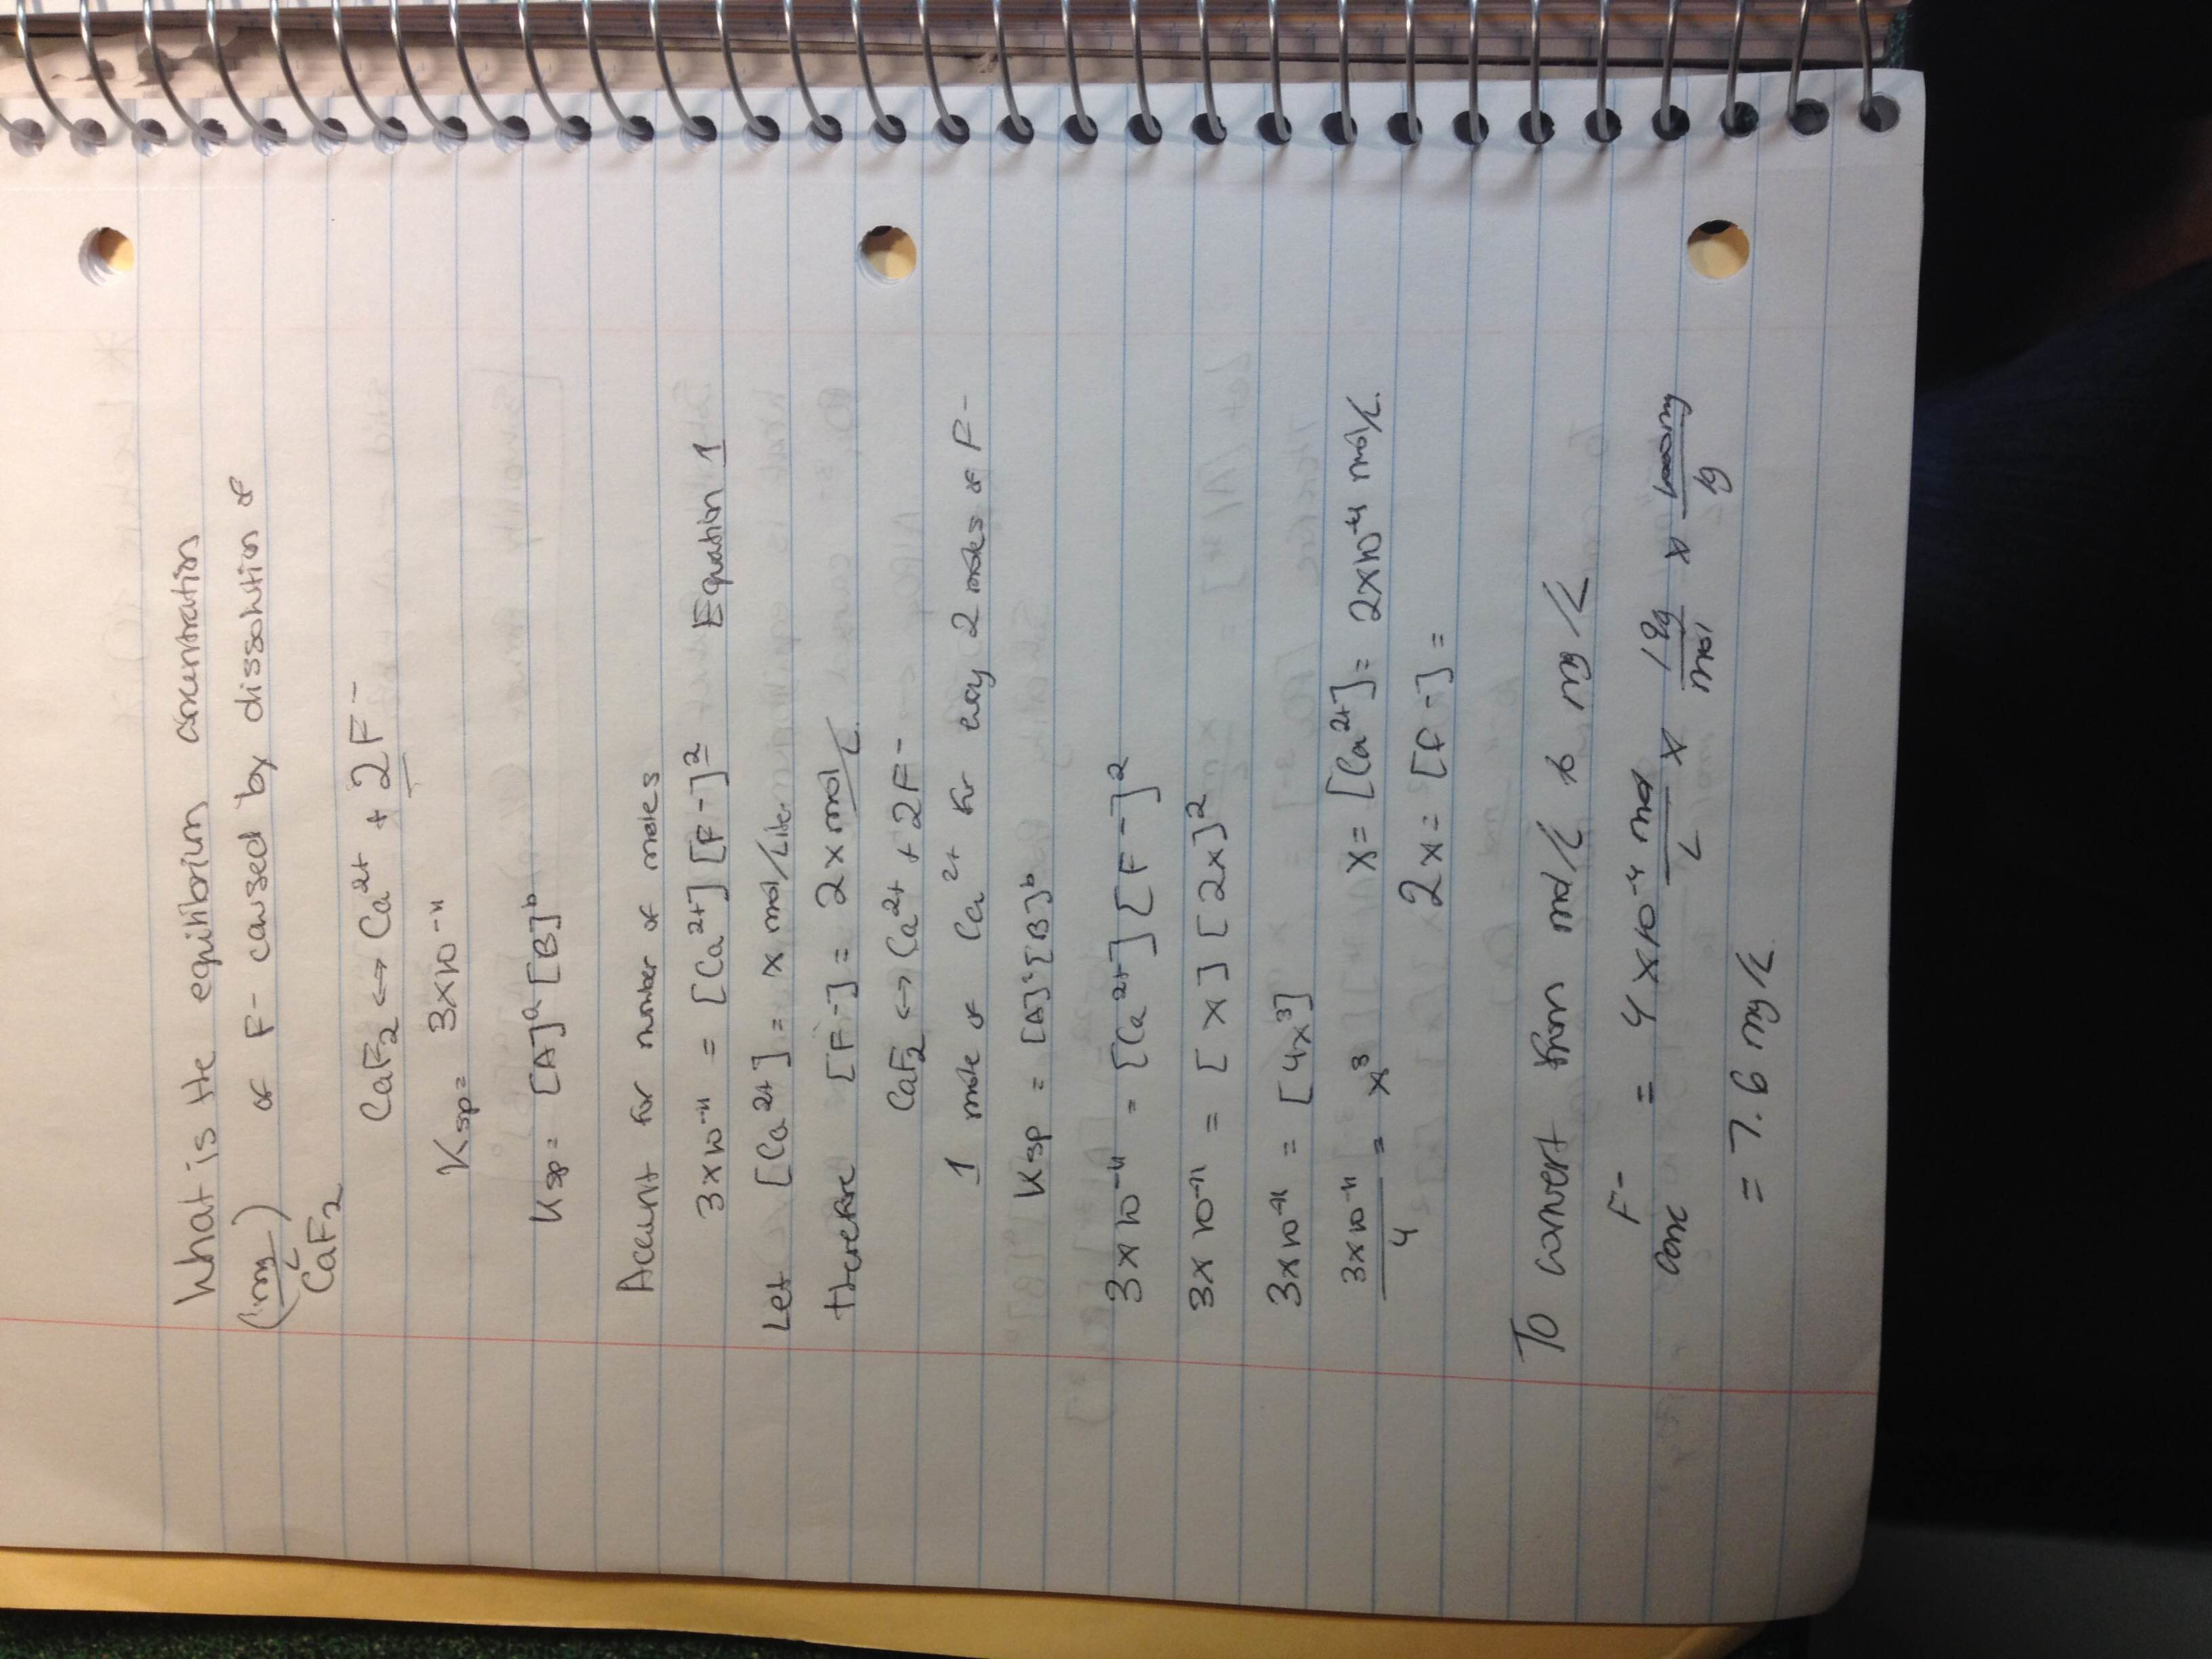 What is the equilibrium concentration
(mg/L) of F- caused by dissolution of
CaF₂
CaF₂ ↔ Ca²⁺ + 2F⁻
Ksp = 3x10⁻¹¹
Ksp = [A]ᵃ [B]ᵇ
Account for number of moles
3x10⁻¹¹ = [Ca²⁺] [F-]² Equation 1
Let [Ca²⁺] = x mol/Liter
therefore [F-] = 2x mol/L
CaF₂ ↔ Ca²⁺ + 2F⁻
1 mole of Ca²⁺ for every 2 moles of F-
Ksp = [A]ᵃ[B]ᵇ
3x10⁻¹¹ = [Ca²⁺] [F-]²
3x10⁻¹¹ = [x] [2x]²
3x10⁻¹¹ = [4x³]
3x10⁻¹¹/4 = x³ x = [Ca²⁺] = 2x10⁻⁴ mol/L
2x = [F-] =
To convert from mol/L to mg/L
F- conc = 4x10⁻⁴ mol/L x 19g/mol x 1000mg/g
= 7.6 mg/L